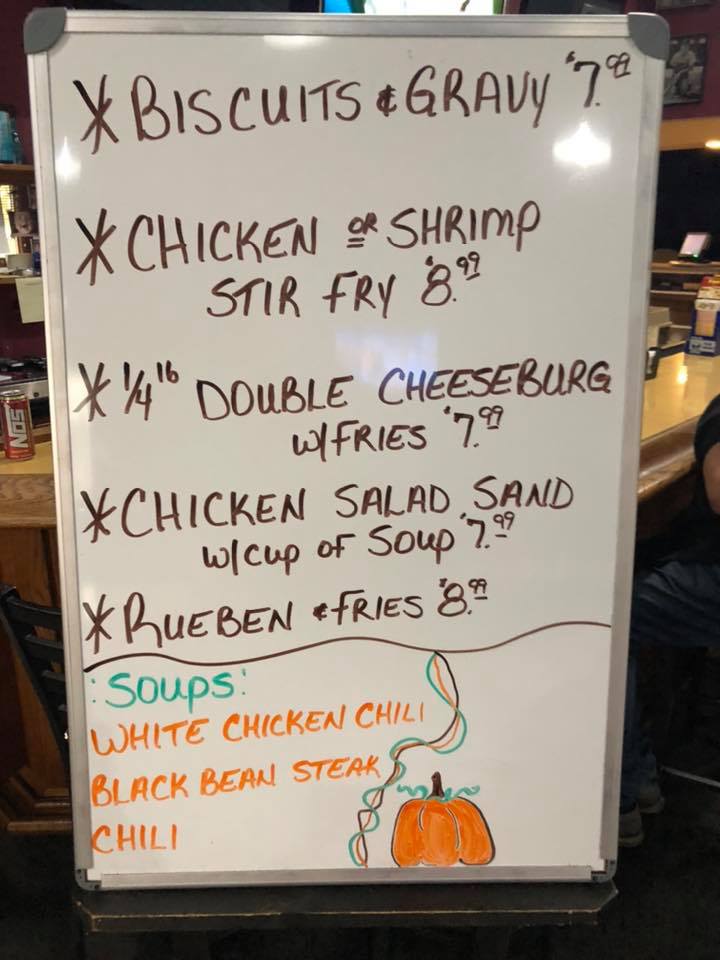 * BISCUITS & GRAVY $7.99
* CHICKEN OR SHRIMP
STIR FRY $8.99
* 1/4 lb DOUBLE CHEESEBURG
W/FRIES $7.99
* CHICKEN SALAD SAND
W/CUP OF SOUP $7.99
* RUEBEN & FRIES $8.99
:SOUPS:
WHITE CHICKEN CHILI
BLACK BEAN STEAK
CHILI
NOS